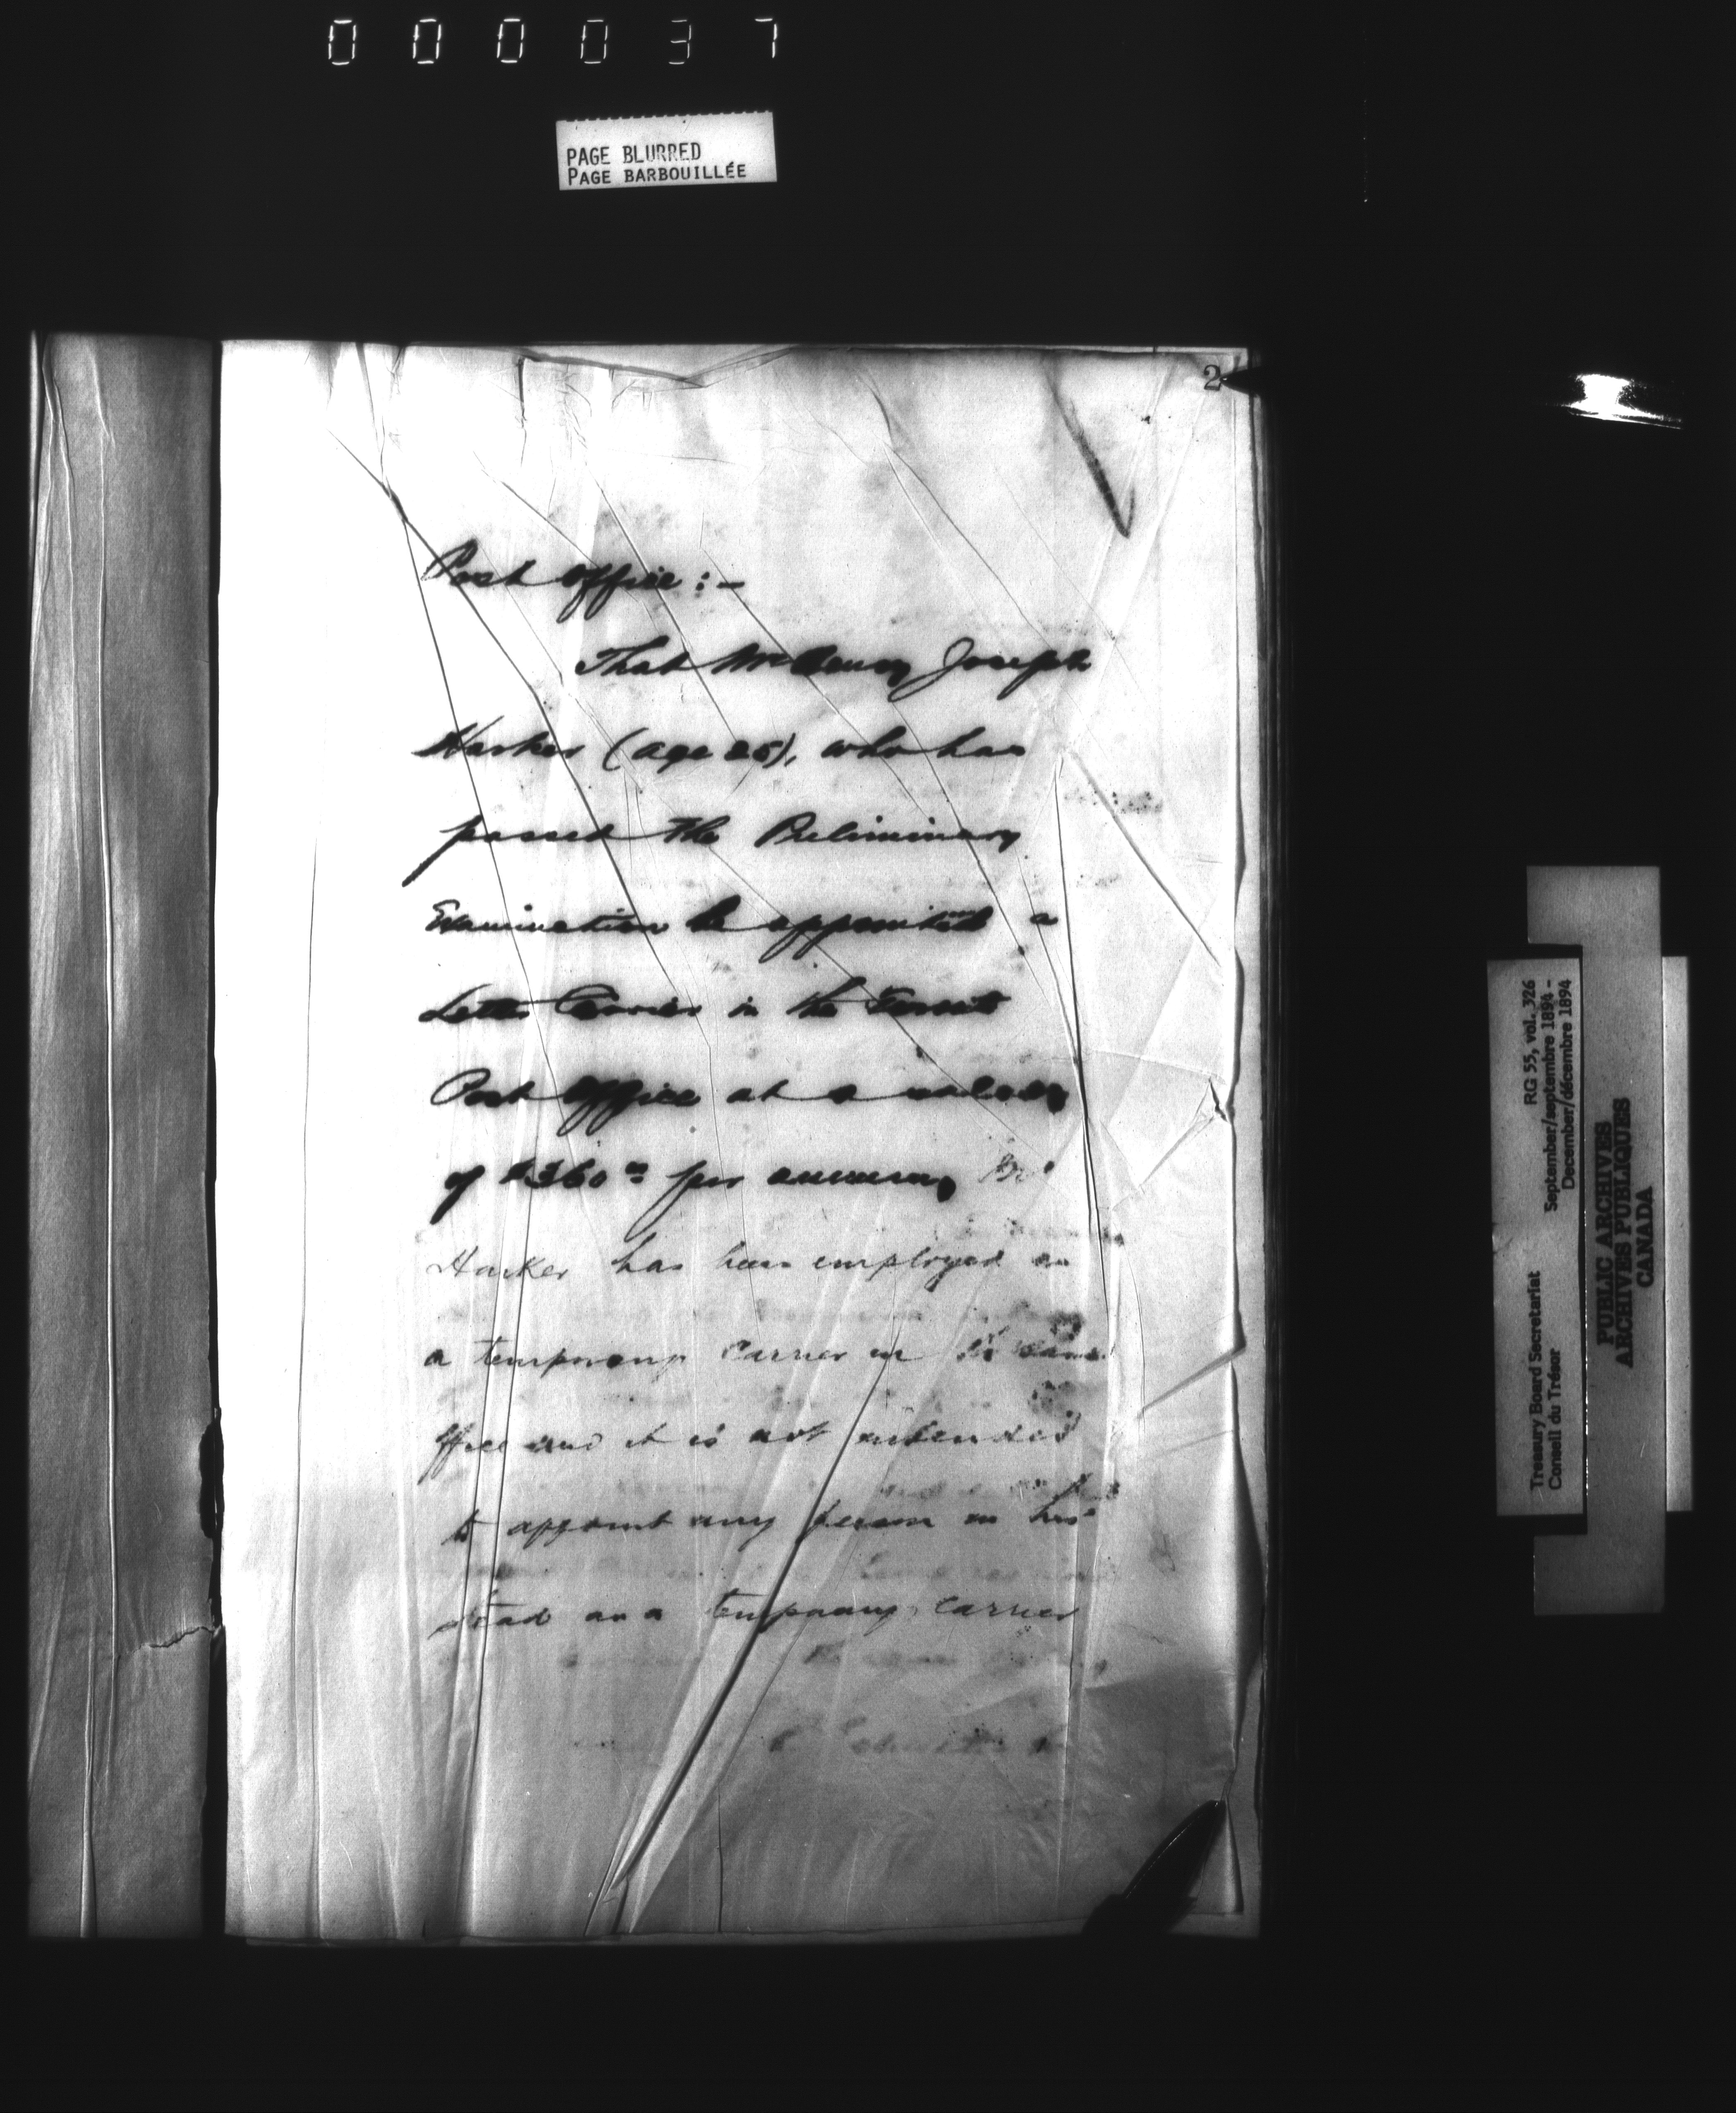 000037
PAGE BLURRED
PAGE BARBOUILLÉE
2
Post Office :-
That Mr Henry Joseph
Harker (age 25), who has
passed the Preliminary
Examination be appointed a
Letter Carrier in the Toronto
Post Office at a salary
of $360 00 per annum, Mr
Harker has been employed as
a temporary carrier in the same
office and it is not intended
to appoint any person in his
stead as a temporary carrier
Treasury Board Secretariat RG 55, vol. 326
Conseil du Trésor September/septembre 1894 -
December/décembre 1894
PUBLIC ARCHIVES
ARCHIVES PUBLIQUES
CANADA